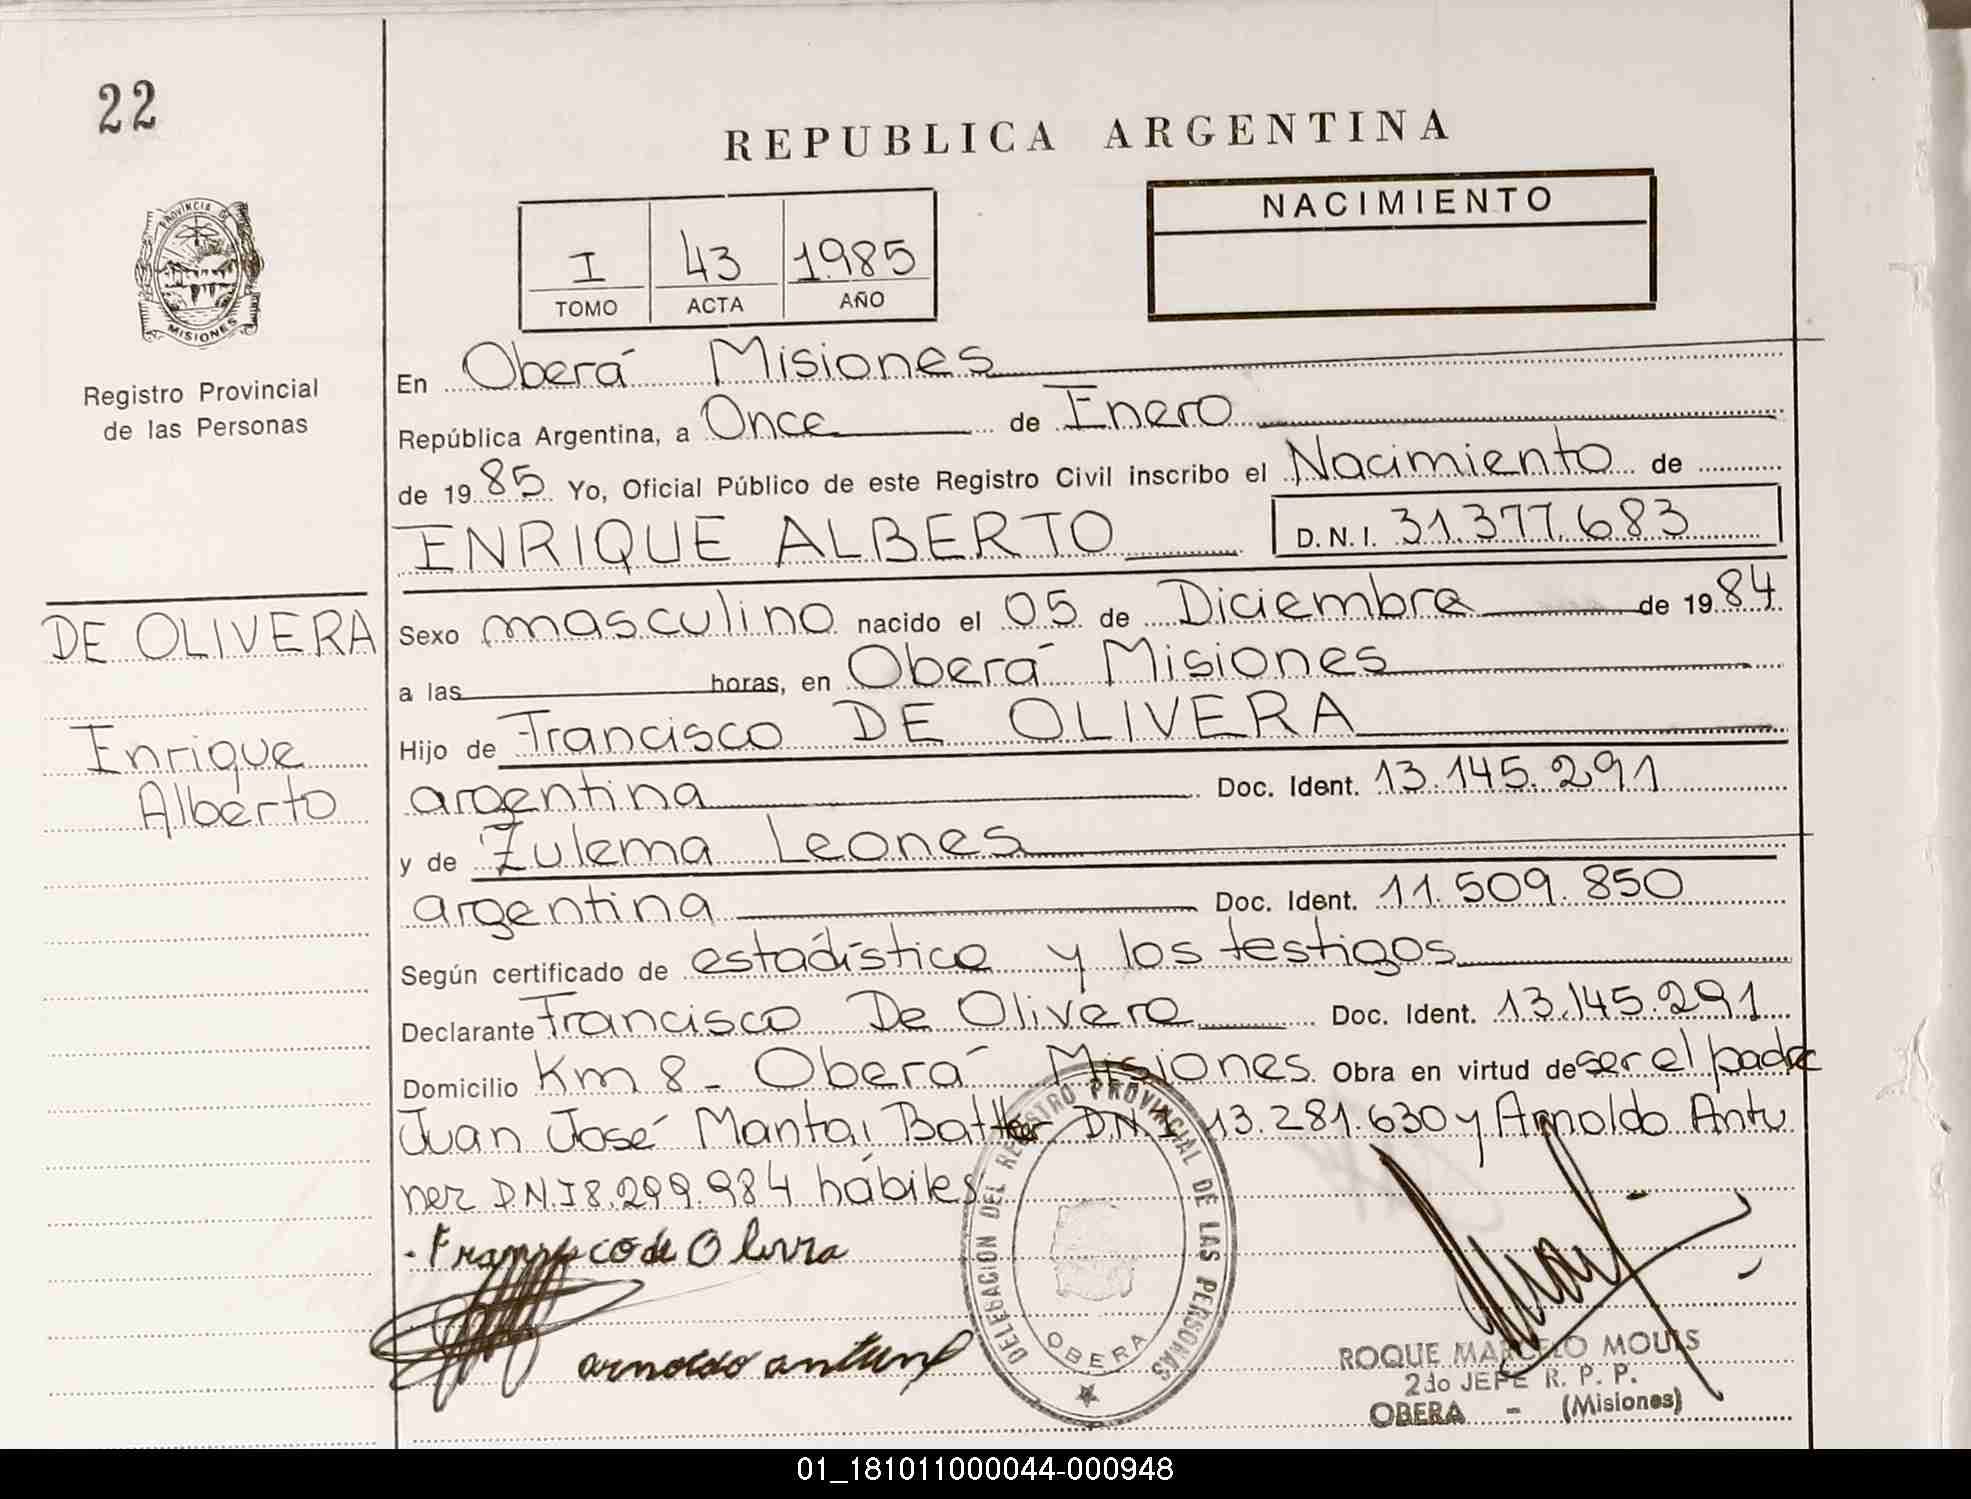 22
REPUBLICA ARGENTINA
PROVINCIA DE
MISIONES
I 43 1985
TOMO ACTA AÑO
NACIMIENTO
Registro Provincial
de las Personas
En Oberá Misiones
República Argentina, a Once de Enero
de 1985 Yo, Oficial Público de este Registro Civil inscribo el Nacimiento de
ENRIQUE ALBERTO D.N.I. 31.377.683
DE OLIVERA
Enrique
Alberto
Sexo masculino nacido el 05 de Diciembre de 1984
a las horas, en Oberá Misiones
Hijo de Francisco DE OLIVERA
argentina Doc. Ident. 13.145.291
y de Zulema Leones
argentina Doc. Ident. 11.509.850
Según certificado de estadístico y los testigos
Declarante Francisco De Olivera Doc. Ident. 13.145.291
Domicilio Km 8 - Oberá Misiones Obra en virtud de ser el padre
Juan José Mantai DNI 13.281.630 y Arnoldo Antu
nez D.N.I 8.299.984 hábiles
DELEGACION DEL REGISTRO PROVINCIAL DE LAS PERSONAS
OBERA
Francisco de Olivera
arnoldo antunez
ROQUE MARCELO MOUIS
2do JEFE R. P. P.
OBERA - (Misiones)
01_181011000044-000948